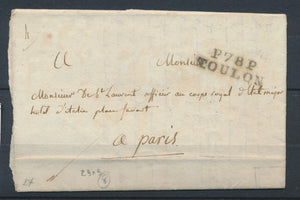 Monsieur
P78P
TOULON
Monsieur De St Laurent officier au corps royal d'Etat major
hotel d'italie place favart
a paris